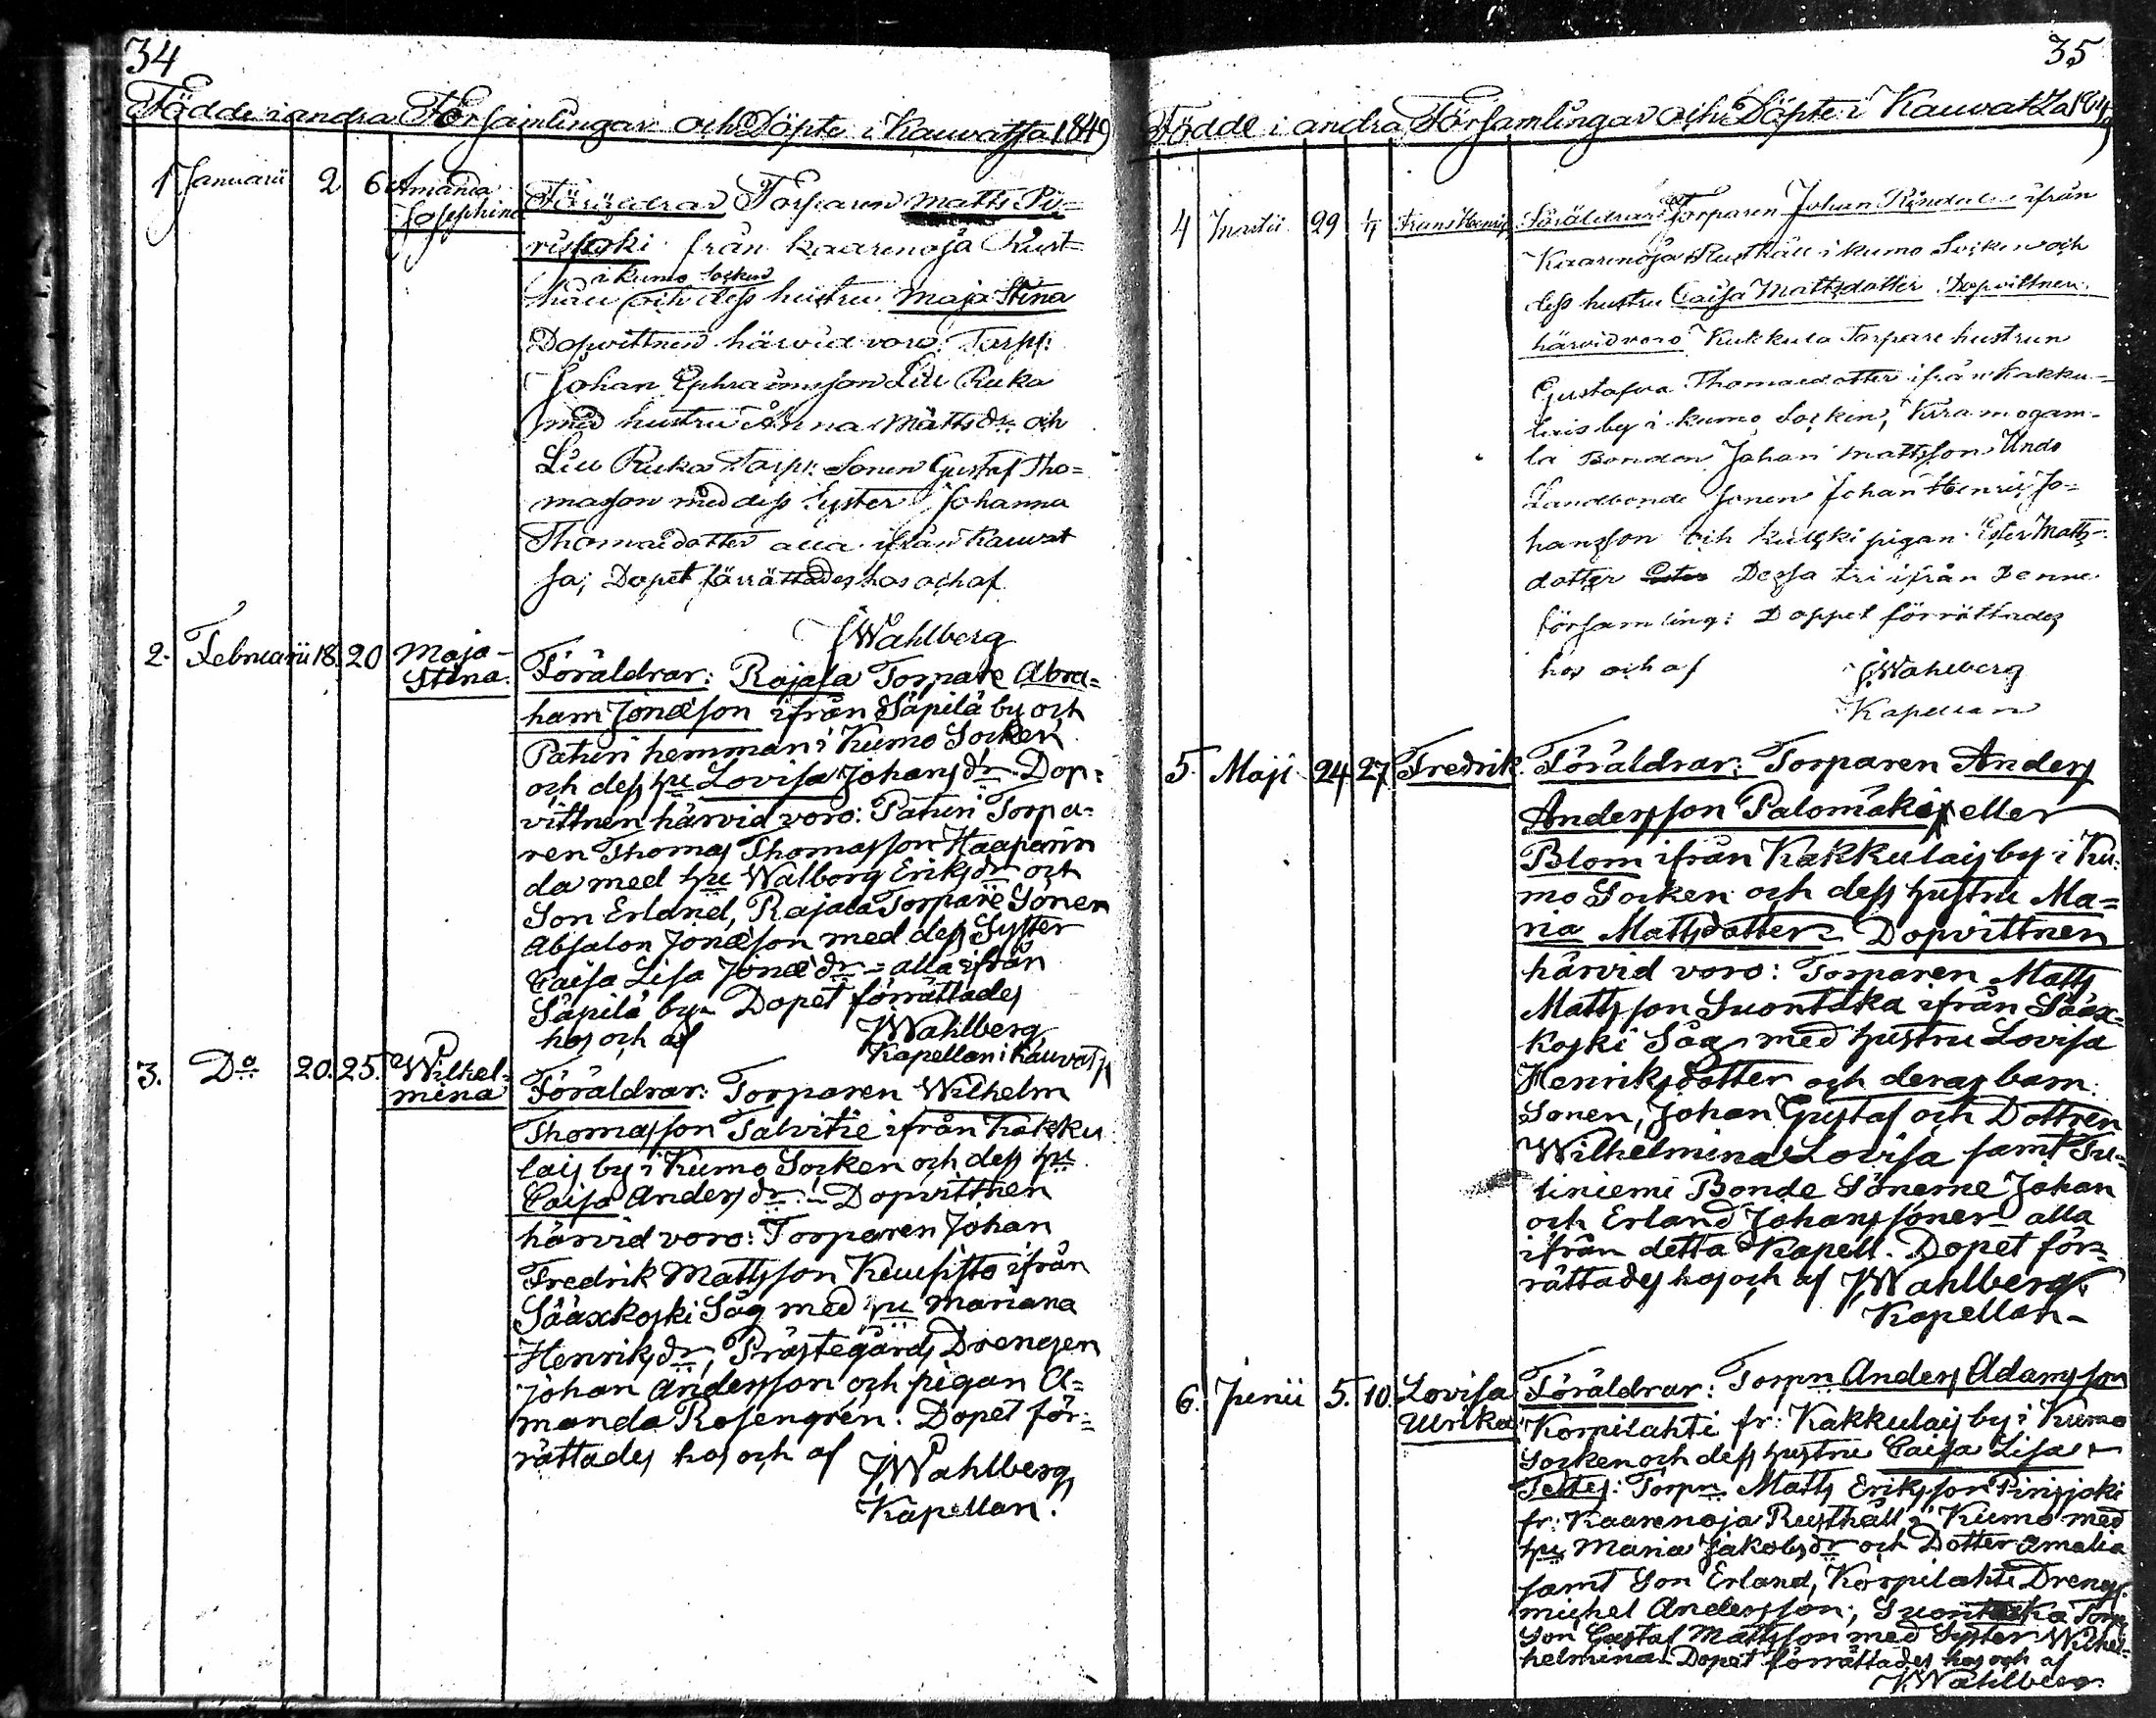 34
Födde i andra Församlingar och Döpte i Kauvatsa 1849
1 Januarii 2 6 Amanda Josephina
Föräldrar Torparen Matts Pi=
risjoki från Kaarenoja Rust=
i Kumo Socken
håll och dess hustru Maja Stina
Dopvittnen härvid voro: Torp:
Johan Ephraimsson Liu Ruka
med hustru Anna Mattsdr och
Liu Ruka Torp: Sonen Gustaf Tho=
masson med dess Syster Johanna
Thomasdotter alla ifrån Kauvat
sa; Dopet förrättades hos och af
J Wahlberg
2. Februarii 18. 20 Maja-Stina.
Föräldrar: Rajala Torpare Abra=
ham Jonæson ifrån Säpilä by och
Paturi hemman i Kumo Socken
och dess hu Lovisa Johansdr. Dop=
vittnen härvid voro: Paturi Torpa=
ren Thomas Thomasson Haaparin
da med hu Walborg Eriksdr och
Son Erland, Rajala Torpare Sonen
Absalon Jonæson med dess Syster
Caisa Lisa Jonædr = alla ifrån
Säpilä by. Dopet förrättades
hos och af J Wahlberg
Kapellan i Kauvatsa
3. Do 20. 25. Wilhel=mina
Föräldrar: Torparen Wilhelm
Thomasson Talvitie ifrån Kakku
lais by i Kumo Socken och dess hu
Caisa Andersdr – Dopvittnen
härvid voro: Torparen Johan
Fredrik Mattsson Kuusisto ifrån
Sääxkoski Såg med hu Mariana
Henriksdr, Prästegårds Drengen
Johan Andersson och pigan A=
manda Rosengrén. Dopet för=
rättades hos och af J Wahlberg
Kapellan.
35
Födde i andra Församlingar och Döpte i Kauvatza 1849
4 Martii 29 1/4 Frans Henrik
Föräldrar: Torparen Johan ifrån
Kaarenoja Rusthåll i Kumo Socken och
dess hustru Caisa Mattsdotter Dopvittnen
härvid voro Kukkula Torpare hustrun
Gustafva Thomasdotter ifrån Kakku=
lais by i Kumo Socken, Kiramogam-
la Bonden Johan Mattsson Undo
Landbonde Sonen Johan Henric Jo=
hansson och pigan Ester Matts-
dotter Dessa tri ifrån Denne
församling: Doppet förrättades
hos och af J Wahlberg
Kapellan
5. Maji 24. 27. Fredrik.
Föräldrar: Torparen Anders
Andersson Palomäki eller
Blom ifrån Kakkulais by i Ku-
mo Socken och dess hustru Ma=
ria Mattsdotter – Dopvittnen
härvid voro: Torparen Matts
Mattsson Suontaka ifrån Sääx-
koski Såg med hustru Lovisa
Henriksdotter och deras barn:
Sonen, Johan Gustaf och Dottren
Wilhelmina Lovisa samt Tu=
liniemi Bonde Sönerne Johan
och Erland Johanssöner – alla
ifrån detta Kapell. Dopet för=
rättades hos och af J Wahlberg.
Kapellan –
6. Junii 5. 10. Lovisa Ulrika
Föräldrar: Torpn Anders Adamsson
Korpilahti fr: Kakkulais by i Kumo
Socken och dess hustru Caisa Lisa –
Testes: Torpn Matts Eriksson Pirisjoki
fr: Kaarenoja Rusthåll i Kumo med
hu Maria Jakobsdr och Dotter Amalia
samt Son Erland, Korpilahti Dreng
Michel Andersson; Suontaka Torp:
Son Gustaf Mattsson med Syster Wilhel=
helmina. Dopet förrättades hos och af
J Wahlberg.